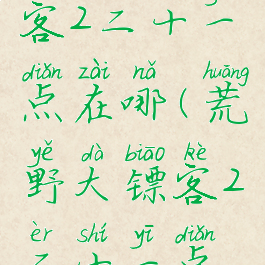 客2二十一
diǎn zài nǎ huāng
点在哪(荒
yě dà biāo kè
野大镖客2
èr shí yī diǎn